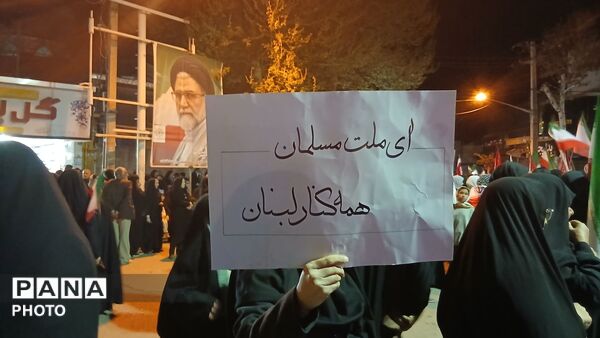 ای ملت مسلمان
همه کنار لبنان
گل
PANA
PHOTO